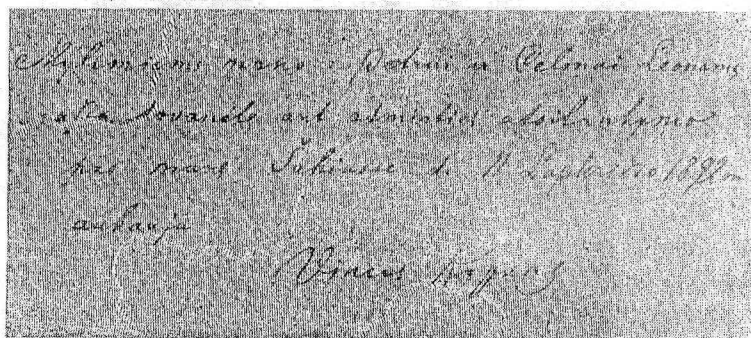 Mylimiems mano : Petrui ir Celinai Leonams
dovanėlę ant atminties atsilankymo
pas manę Šakiuose d. 11 189 m
aukauja
Vincas Kapsas